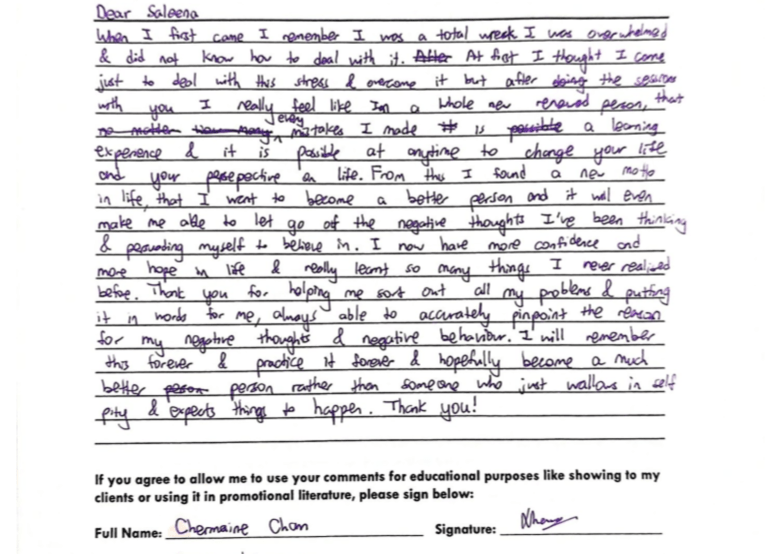 Dear Saleena
When I first came I remember I was a total wreck I was overwhelmed
& did not know how to deal with it. After At first I thought I come
just to deal with this stress & overcome it but after doing the sessions
with you I really feel like I'm a whole new renewed person, that
no matter how many every mistakes I made it is possible a learning
experience & it is possible at anytime to change your life
and your perspective on life. From this I found a new motto
in life, that I want to become a better person and it will even
make me able to let go of the negative thoughts I've been thinking
& persuading myself to believe in. I now have more confidence and
more hope in life & really learnt so many things I never realised
before. Thank you for helping me sort out all my problems & putting
it in words for me, always able to accurately pinpoint the reason
for my negative thoughts & negative behaviour. I will remember
this forever & practice it forever & hopefully become a much
better person person rather than someone who just wallows in self
pity & expects things to happen. Thank you!
If you agree to allow me to use your comments for educational purposes like showing to my
clients or using it in promotional literature, please sign below:
Full Name: Chermaine Chan Signature: